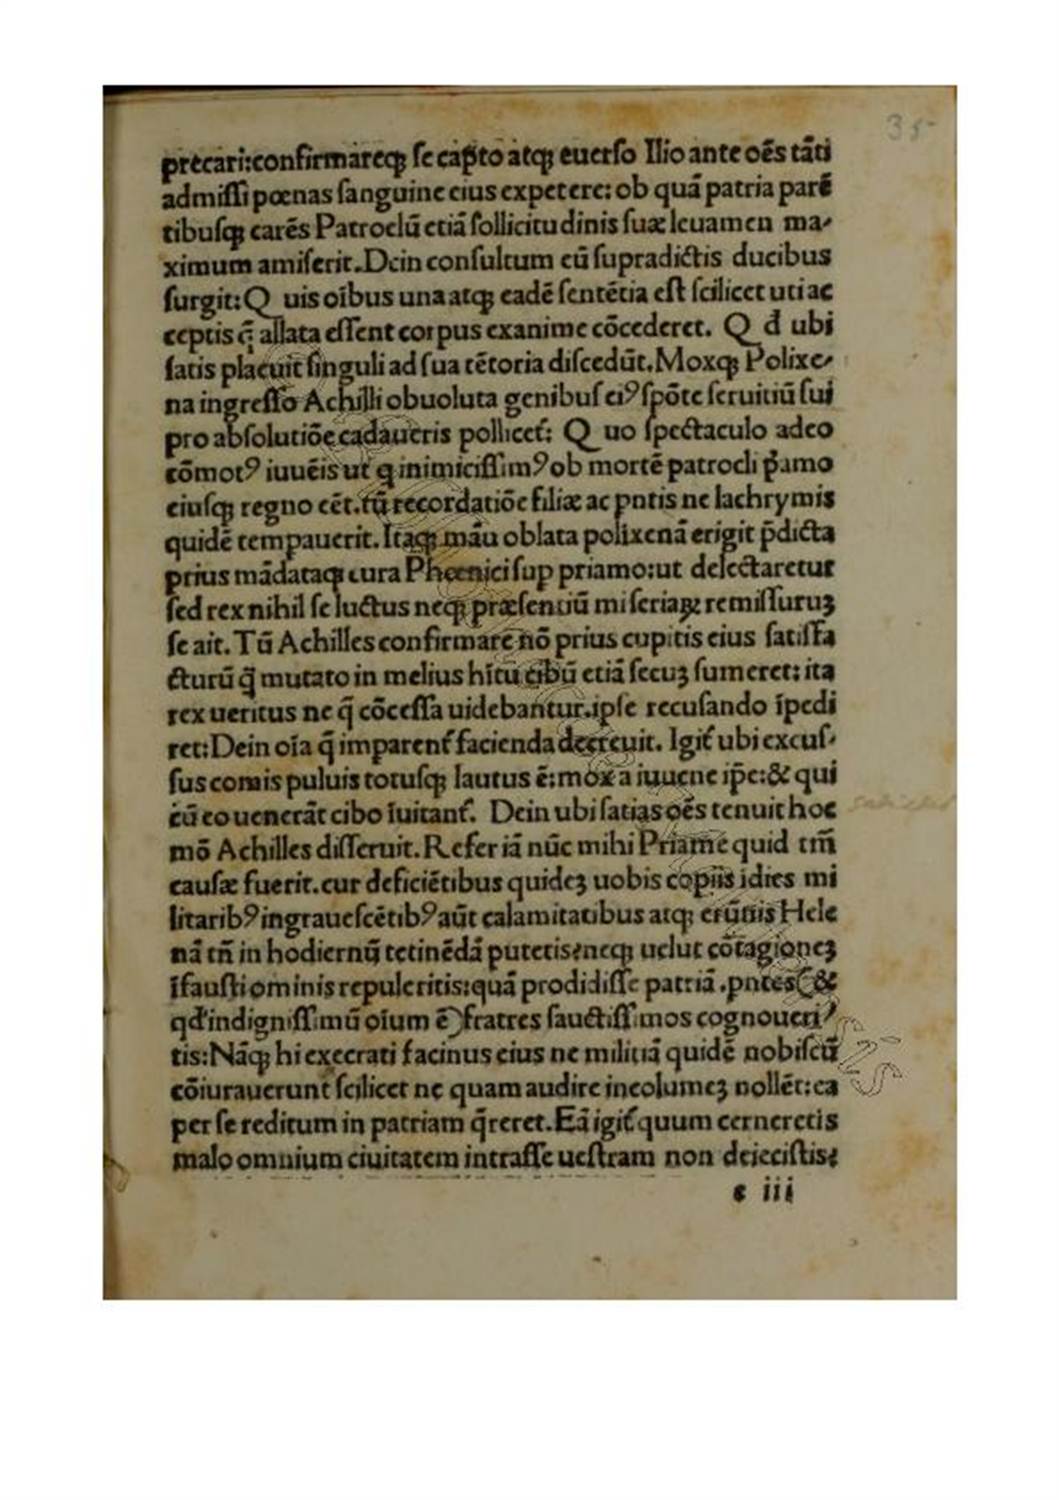 35
precari:confirmareq₃ ſe capto atq₃ euerſo Ilio ante oēs tāti
admiſſi pœnas ſanguine eius expetere: ob quā patria parē
tibuſq₃ carēs Patroclū etiā ſollicitudinis ſuæ leuamen ma⸗
ximum amiſerit.Dein conſultum cū ſupradictis ducibus
ſurgit:Q uis oībus una atq₃ eadē ſentētia eſt ſcilicet uti ac
ceptis q̄ allata eſſent corpus exanime cōcederet. Q đ ubi
ſatis placuit ſinguli ad ſua tētoria diſcedūt.Moxq₃ Polixe⸗
na ingreſſo Achilli obuoluta genibuſ eiꝰ ſpōte ſeruitiū ſui
pro abſolutiōe cadaueris pollicet᷑: Q uo ſpectaculo adeo
cōmotꝰ iuuēis ut q inimiciſſimꝰ ob mortē patrocli p̄amo
eiuſq₃ regno eēt.tū recordatiōe filiæ ac pntis ne lachrymis
quidē tempauerit. Itaq₃ māu oblata polixenā erigit p̄dicta
prius mādataq₃ cura Phœnici ſup priamo:ut delectaretur
ſed rex nihil ſe luctus neq₃ præſentiū miſeriaꝝ remiſſuruꝫ
ſe ait. Tū Achilles confirmare nō prius cupitis eius ſatiſfa
cturū q̄ mutato in melius hītu cibū etiā ſecuꝫ ſumeret: ita
rex ueritus ne q̄ cōceſſa uidebantur.ipſe recuſando īpedi
ret:Dein oīa q̄ imparent᷑ facienda decreuit. Igit᷑ ubi excuſ⸗
ſus comis puluis totuſq₃ lautus ē:mox a iuuene ip̄e:& qui
cū eo uenerāt cibo īuitant᷑. Dein ubi ſatias oēs tenuit hoc
mō Achilles diſſeruit.Refer iā nūc mihi Priame quid tm̄
cauſæ fuerit.cur deficiētibus quideꝫ uobis copiis idies mi
litaribꝰ ingraueſcētibꝰ aūt calamitatibus atq₃ erūnis Hele
nā tn̄ in hodiernū retinēdā putetis?neq₃ uelut cōtagioneꝫ
īfauſti ominis repuleritis:quā prodidiſſe patriā .pntes(&
qđ indigniſſimū oīum ē)fratres ſanctiſſimos cognoueri⸗
tis:Nāq₃ hi execrati facinus eius ne militiā quidē nobiſcū
cōiurauerunt ſcilicet ne quam audire incolumeꝫ nollēt:ea
per ſe reditum in patriam q̄reret.Eā igit᷑ quum cerneretis
malo omnium ciuitatem intraſſe ueſtram non deieciſtis?
e iii